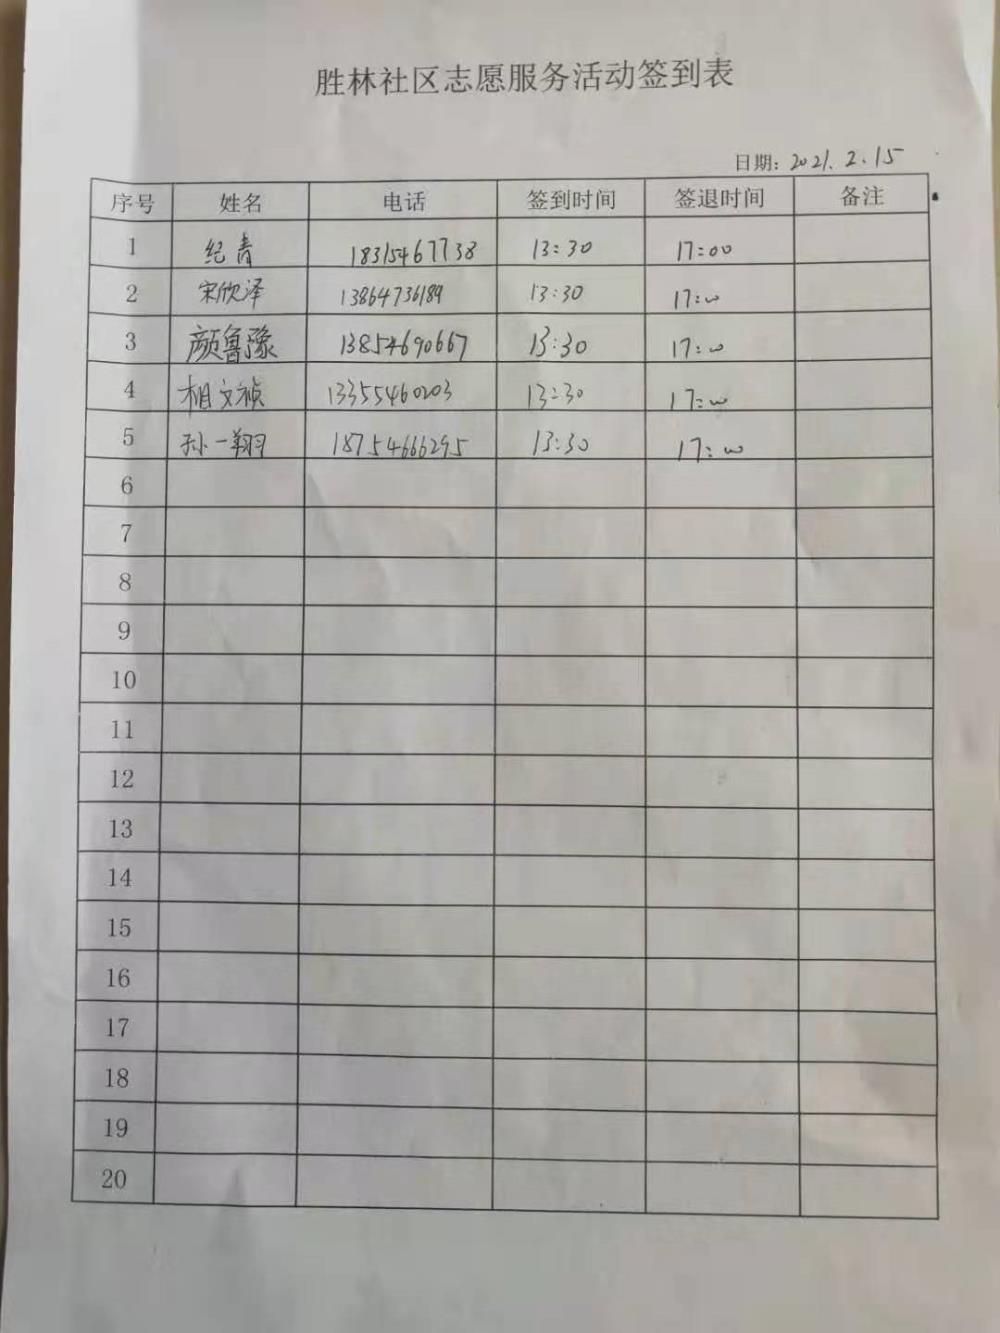 胜林社区志愿服务活动签到表
日期: 2021.2.15
序号 姓名 电话 签到时间 签退时间 备注
1 纪青 18315467738 13:30 17:00
2 宋欣泽 13864736189 13:30 17:00
3 颜鲁豫 13854690667 13:30 17:00
4 相文祯 13355460203 13:30 17:00
5 孙一翔 18754666295 13:30 17:00
6
7
8
9
10
11
12
13
14
15
16
17
18
19
20